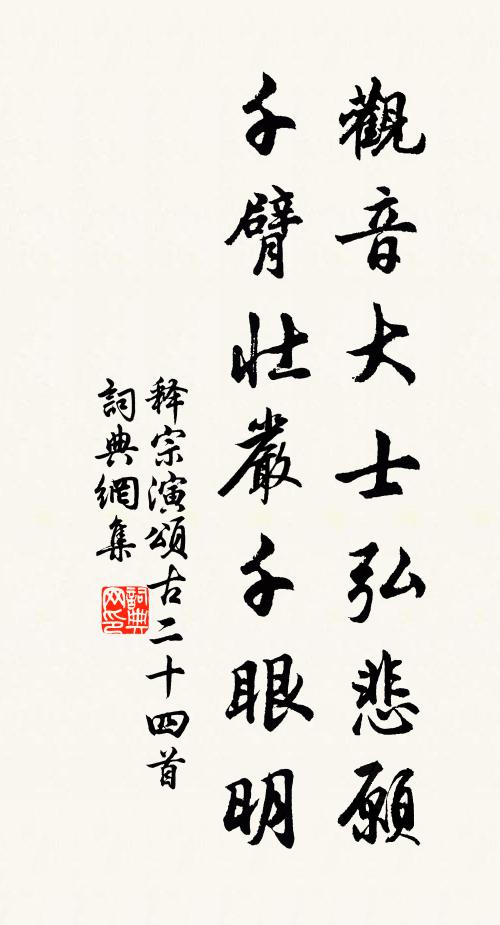 觀音大士弘悲願
千臂壯嚴千眼明
释宗演頌古二十四首
詞典網集
詞典网印